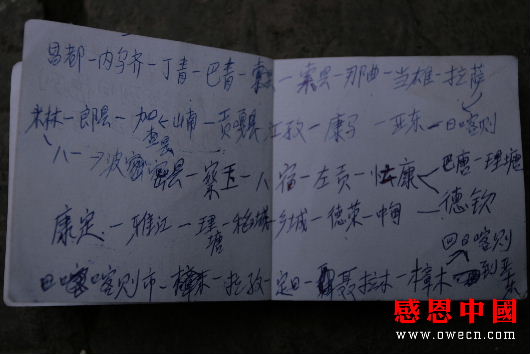 昌都－内乌齐－丁青－巴青－索县－那曲－当雄－拉萨
米林－郎县－加查县 山南－贡嘎县 江孜－康马－亚东－日喀则
八一→波密 察玉－八宿－左贡－芒康 巴唐－理塘
康定－雅江－理塘－稻城－乡城－德荣－中甸－德钦
回日喀则
日喀则市－樟木－拉孜－定日－聂拉木－樟木 到亚东
感恩中國
www.owecn.com